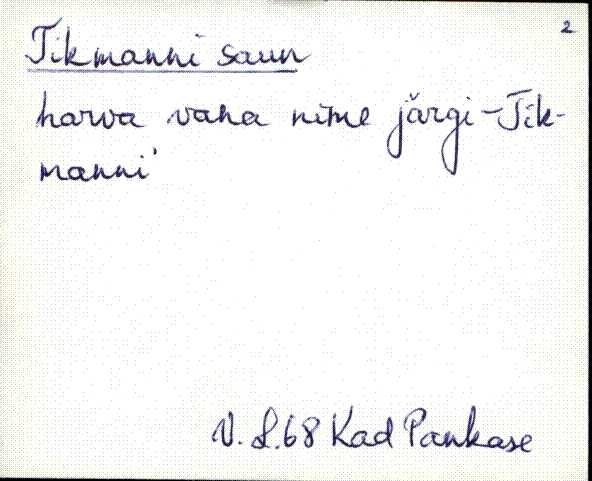 2
Tikmanni saun
harva vana nime järgi - Tik-
manni'
V. L. 68 Kad Pankase